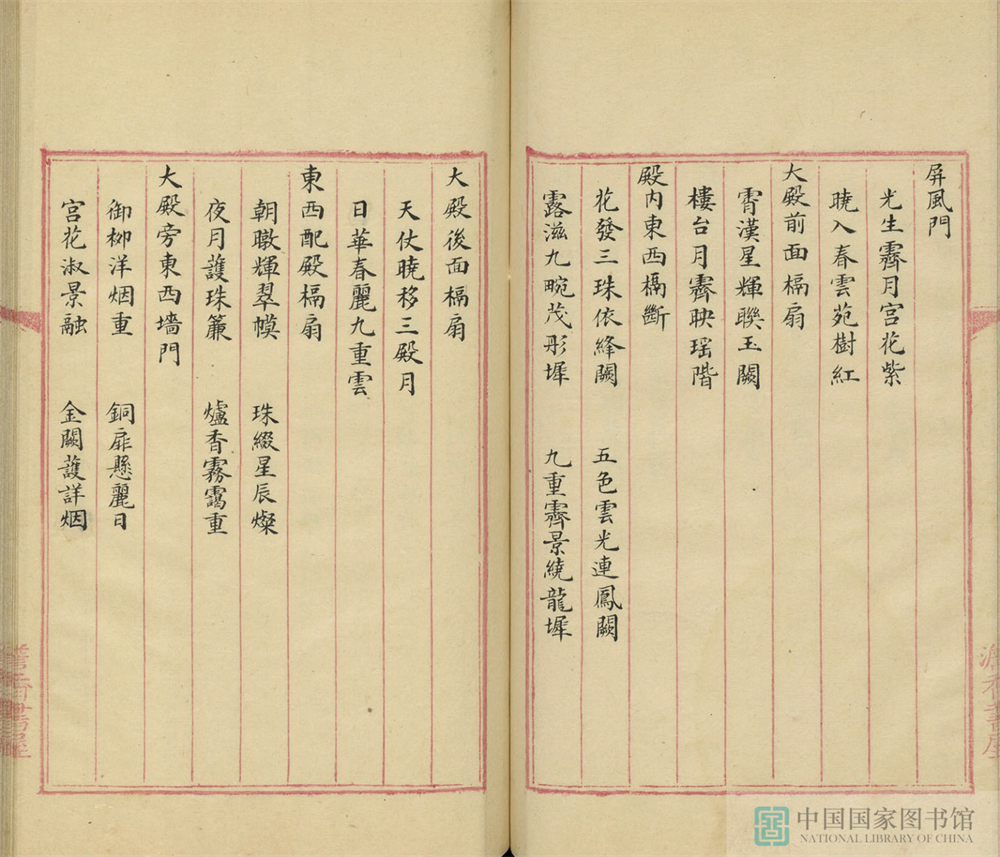 屏風門
光生霽月宮花紫
曉入春雲苑樹紅
大殿前面槅扇
霄漢星輝聯玉闕
樓台月霽映瑶階
殿内東西槅斷
花發三珠依絳闕　五色雲光連鳳闕
露滋九畹茂彤墀　九重霽景繞龍墀
大殿後面槅扇
天仗曉移三殿月
日華春麗九重雲
東西配殿槅扇
朝暾輝翠幙　珠綴星辰燦
夜月護珠簾　爐香霧靄重
大殿旁東西墻門
御柳洋烟重　銅扉懸麗日
宮花淑景融　金闕護詳烟
中国国家图书馆
NATIONAL LIBRARY OF CHINA